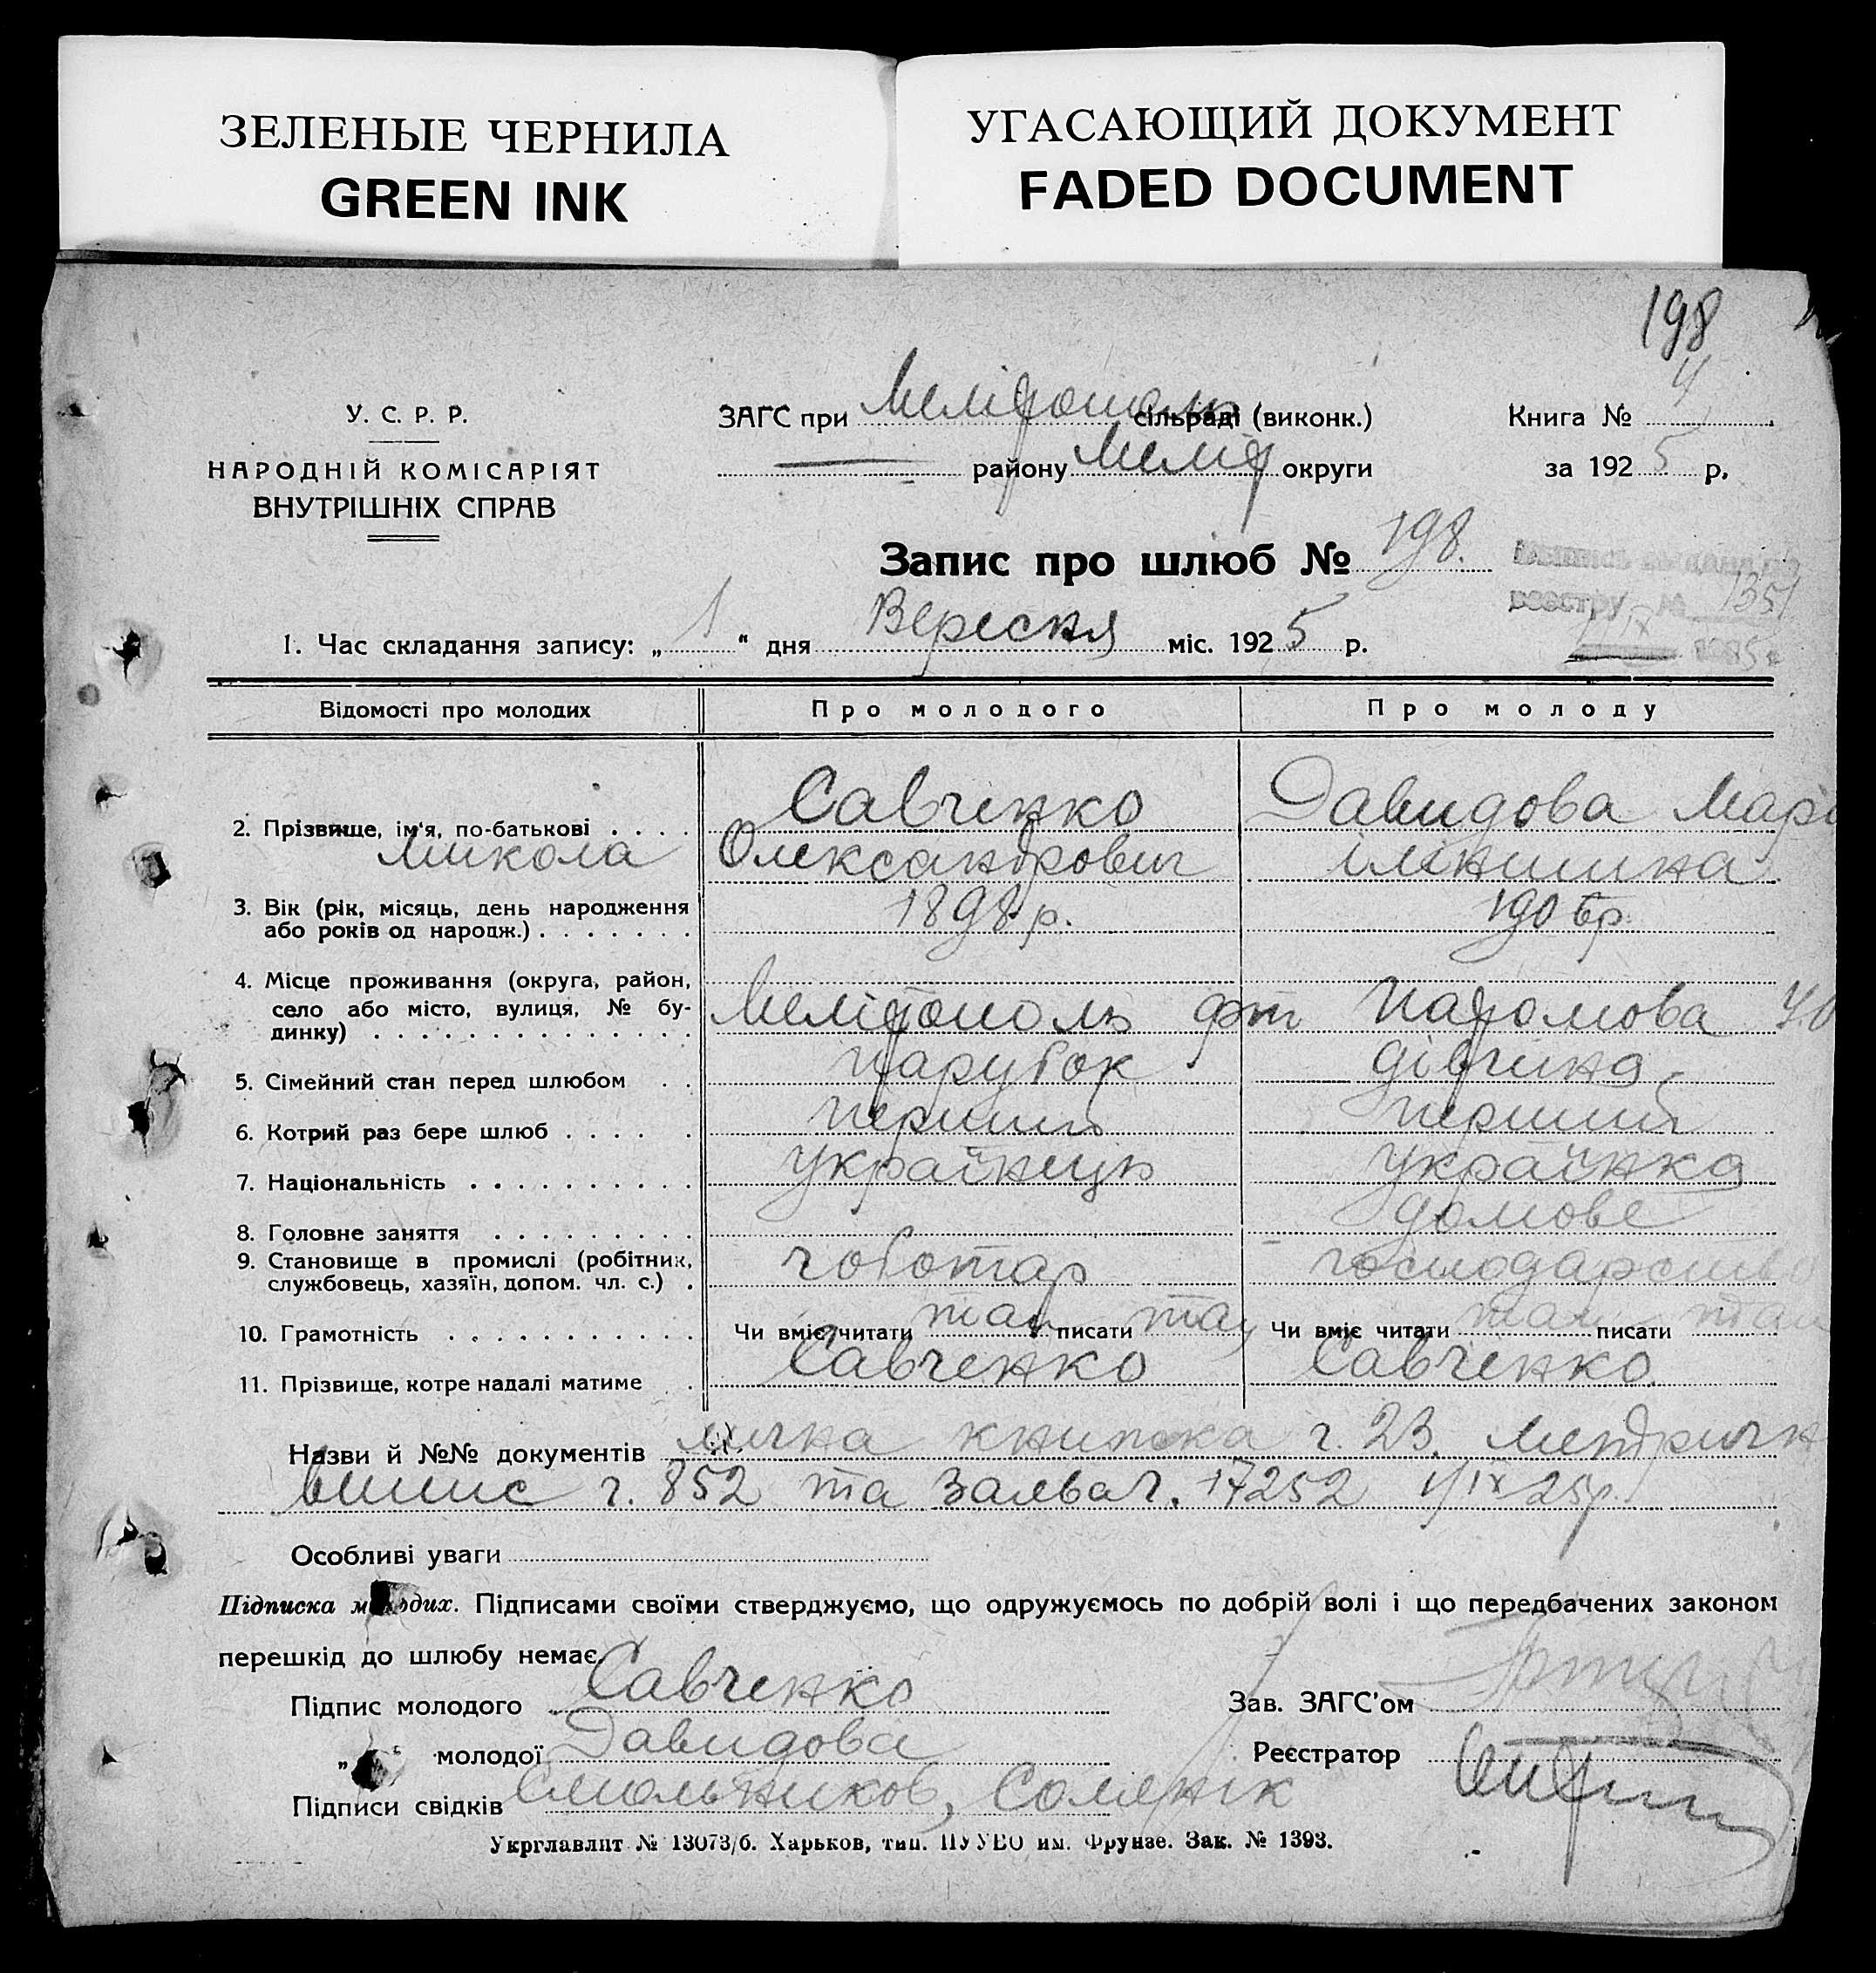 ЗЕЛЕНЫЕ ЧЕРНИЛА
GREEN INK
УГАСАЮЩИЙ ДОКУМЕНТ
FADED DOCUMENT
198
У. С. Р. Р.
НАРОДНІЙ КОМІСАРІЯТ
ВНУТРІШНІХ СПРАВ
ЗАГС при Мелітополь сільраді (виконк.)
району Меліт округи
Книга № 4
за 192 5 р.
Запис про шлюб № 198.
реєстру № 1351
1. Час складання запису: „ 1 “ дня Вересня міс. 192 5 р.
Відомості про молодих Про молодого Про молоду
2. Прізвище, ім'я, по-батькові . . . . Савченко Давидова Марі
Микола Олександрович
3. Вік (рік, місяць, день народження 1898 р.
або років од народж.) . . . . . . .
4. Місце проживання (округа, район,
село або місто, вулиця, № бу- Мелітополь
динку) . . . . . . . . . . . . . .
5. Сімейний стан перед шлюбом . . парубок дівчина
6. Котрий раз бере шлюб . . . . . перший перший
7. Національність . . . . . . . . . . українець українка
8. Головне заняття . . . . . . . . . домове
9. Становище в промислі (робітник, чоботар господарство
службовець, хазяїн, допом. чл. с.) .
10. Грамотність . . . . . . . . . . . Чи вміє читати так писати так Чи вміє читати так писати так
11. Прізвище, котре надалі матиме . . Савченко Савченко
Назви й №№ документів лична книжка ч. 23. Метричн
випис ч. 852 та заява ч. 17252 1/IX 25р.
Особливі уваги
Підписка молодих. Підписами своїми стверджуємо, що одружуємось по добрій волі і що передбачених законом
перешкід до шлюбу немає.
Підпис молодого Савченко Зав. ЗАГС'ом
„ “ молодої Давидова Реєстратор
Підписи свідків Смольников, Соляник
Укрглавліт № 13073/б. Харьков, тип. ПУУВО им. Фрунзе. Зак. № 1393.